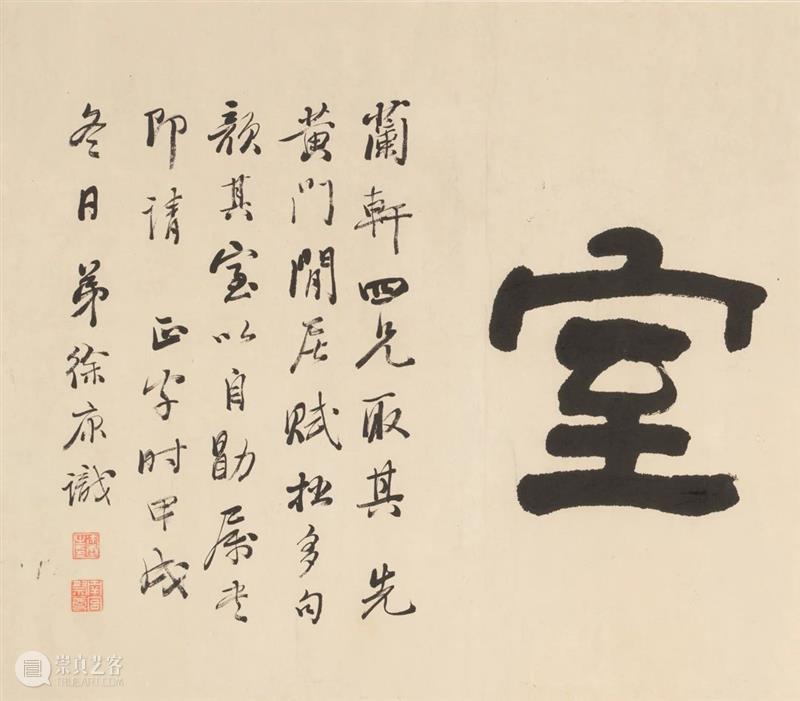 室
蘭軒四兄取其先
黄門閒居賦拙多句
顔其室以自勖屬书
即請 正字时甲戌
冬日弟徐康識
崇真艺客
TRUEART.COM